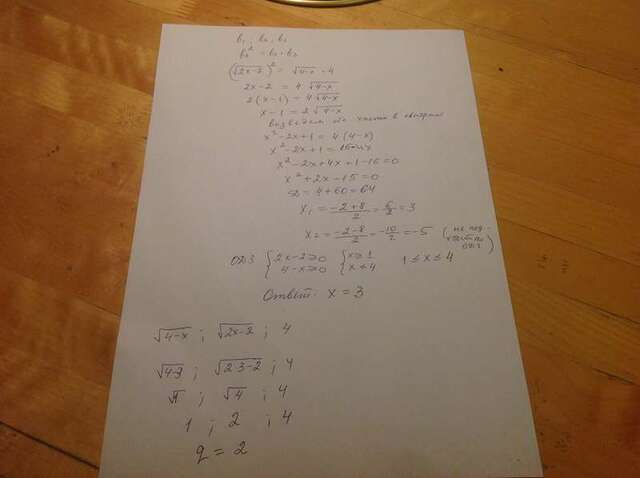 b₁ ; b₂ ; b₃
b₂² = b₁ · b₃
(√(2x-2))² = √(4-x) · 4
2x-2 = 4 √(4-x)
2(x-1) = 4√(4-x)
x-1 = 2√(4-x)
возведем обе части в квадрат
x²-2x+1 = 4(4-x)
x²-2x+1 = 16-4x
x²-2x+4x+1-16=0
x²+2x-15=0
D = 4+60=64
x₁ = (-2+8)/2 = 6/2 = 3
x₂ = (-2-8)/2 = -10/2 = -5 (не под-
ОДЗ)
ОДЗ { 2x-2≥0 { x≥1 1≤x≤4
4-x≥0 x≤4
Ответ: x=3
√(4-x) ; √(2x-2) ; 4
√(4-3) ; √(2·3-2) ; 4
√1 ; √4 ; 4
1 ; 2 ; 4
q = 2